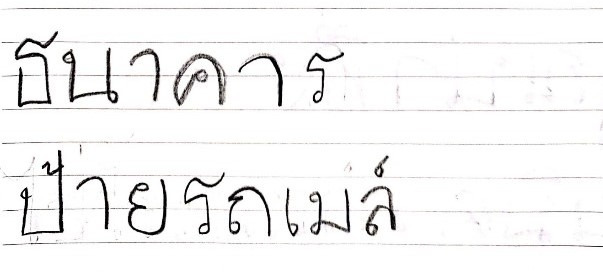 ธนาคาร
ป้ายรถเมล์